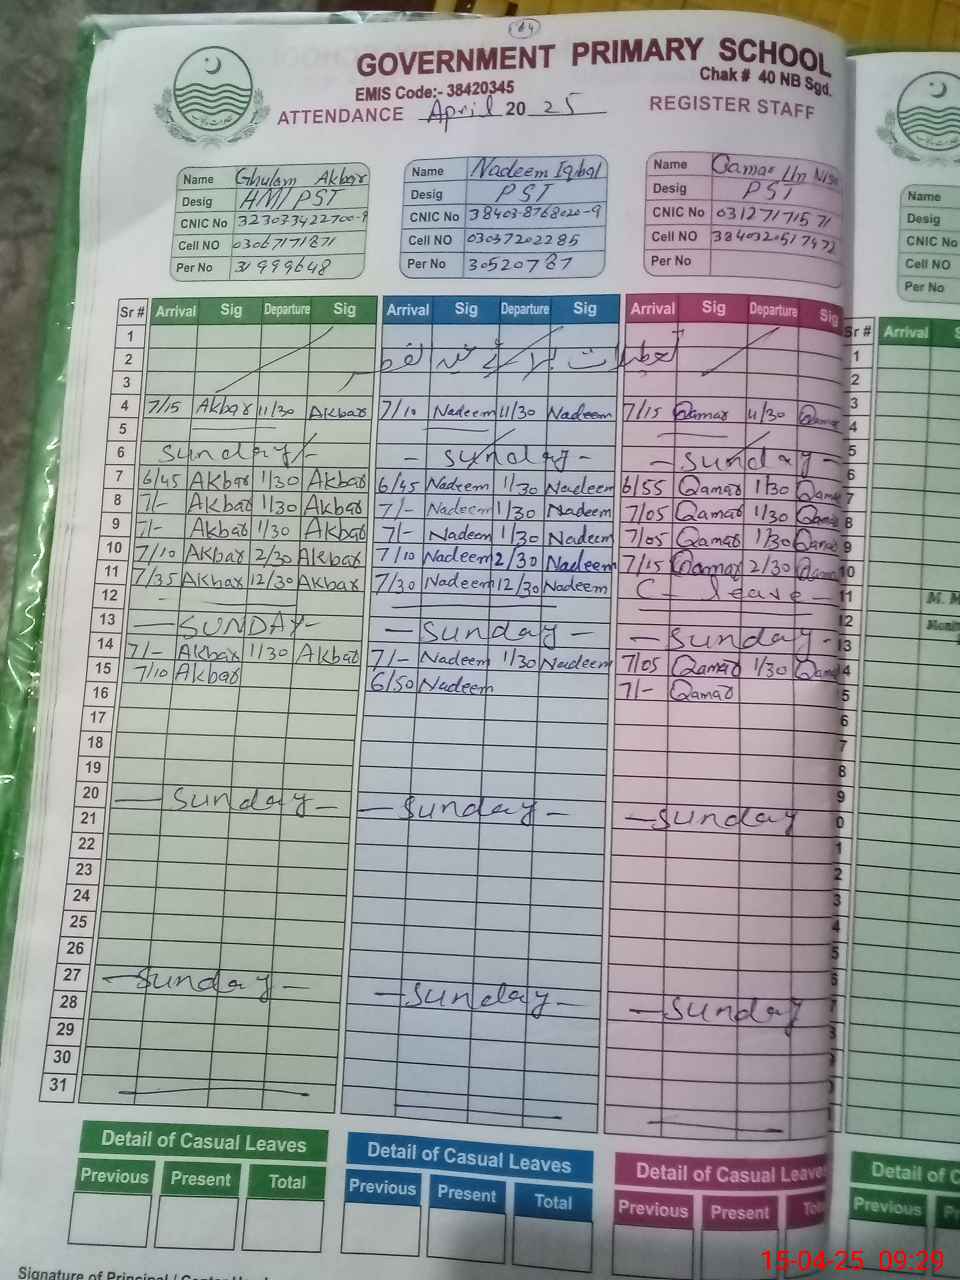 64
GOVERNMENT PRIMARY SCHOOL
EMIS Code:- 38420345 Chak # 40 NB Sgd.
ATTENDANCE April 2025 REGISTER STAFF
Name Ghulam Akbar
Desig AMI PST
CNIC No 323033422700-9
Cell NO 03067171871
Per No 31999648
Name Nadeem Iqbal
Desig PST
CNIC No 38403-8768020-9
Cell NO 03037202285
Per No 30520787
Name Qamar Un Nisa
Desig PST
CNIC No 03127171571
Cell NO 3840320517472
Per No
Name
Desig
CNIC No
Cell NO
Per No
Sr # Arrival Sig Departure Sig Arrival Sig Departure Sig Arrival Sig Departure Sig Sr # Arrival
1
2
3
4 7/15 Akbar 11/30 Akbar 7/10 Nadeem 11/30 Nadeem 7/15 Qamar 11/30 Qamar
5
6 Sunday - Sunday - - Sunday -
7 6/45 Akbar 1/30 Akbar 6/45 Nadeem 1/30 Nadeem 6/55 Qamar 1/30 Qamar
8 7/- Akbar 1/30 Akbar 7/- Nadeem 1/30 Nadeem 7/05 Qamar 1/30 Qamar
9 7/- Akbar 1/30 Akbar 7/- Nadeem 1/30 Nadeem 7/05 Qamar 1/30 Qamar
10 7/10 Akbar 2/30 Akbar 7/10 Nadeem 2/30 Nadeem 7/15 Qamar 2/30 Qamar
11 7/35 Akbar 12/30 Akbar 7/30 Nadeem 12/30 Nadeem C- leave -
12
13 - SUNDAY - - Sunday - - Sunday -
14 7/- Akbar 1/30 Akbar 7/- Nadeem 1/30 Nadeem 7/05 Qamar 1/30 Qamar
15 7/10 Akbar 6/50 Nadeem 7/- Qamar
16
17
18
19
20 - Sunday - - Sunday - - Sunday
21
22
23
24
25
26
27 - Sunday - - Sunday - - Sunday
28
29
30
31
Detail of Casual Leaves Detail of Casual Leaves Detail of Casual Leaves Detail of C
Previous Present Total Previous Present Total Previous Present Previous
Signature of Principal /
15-04-25 09:29